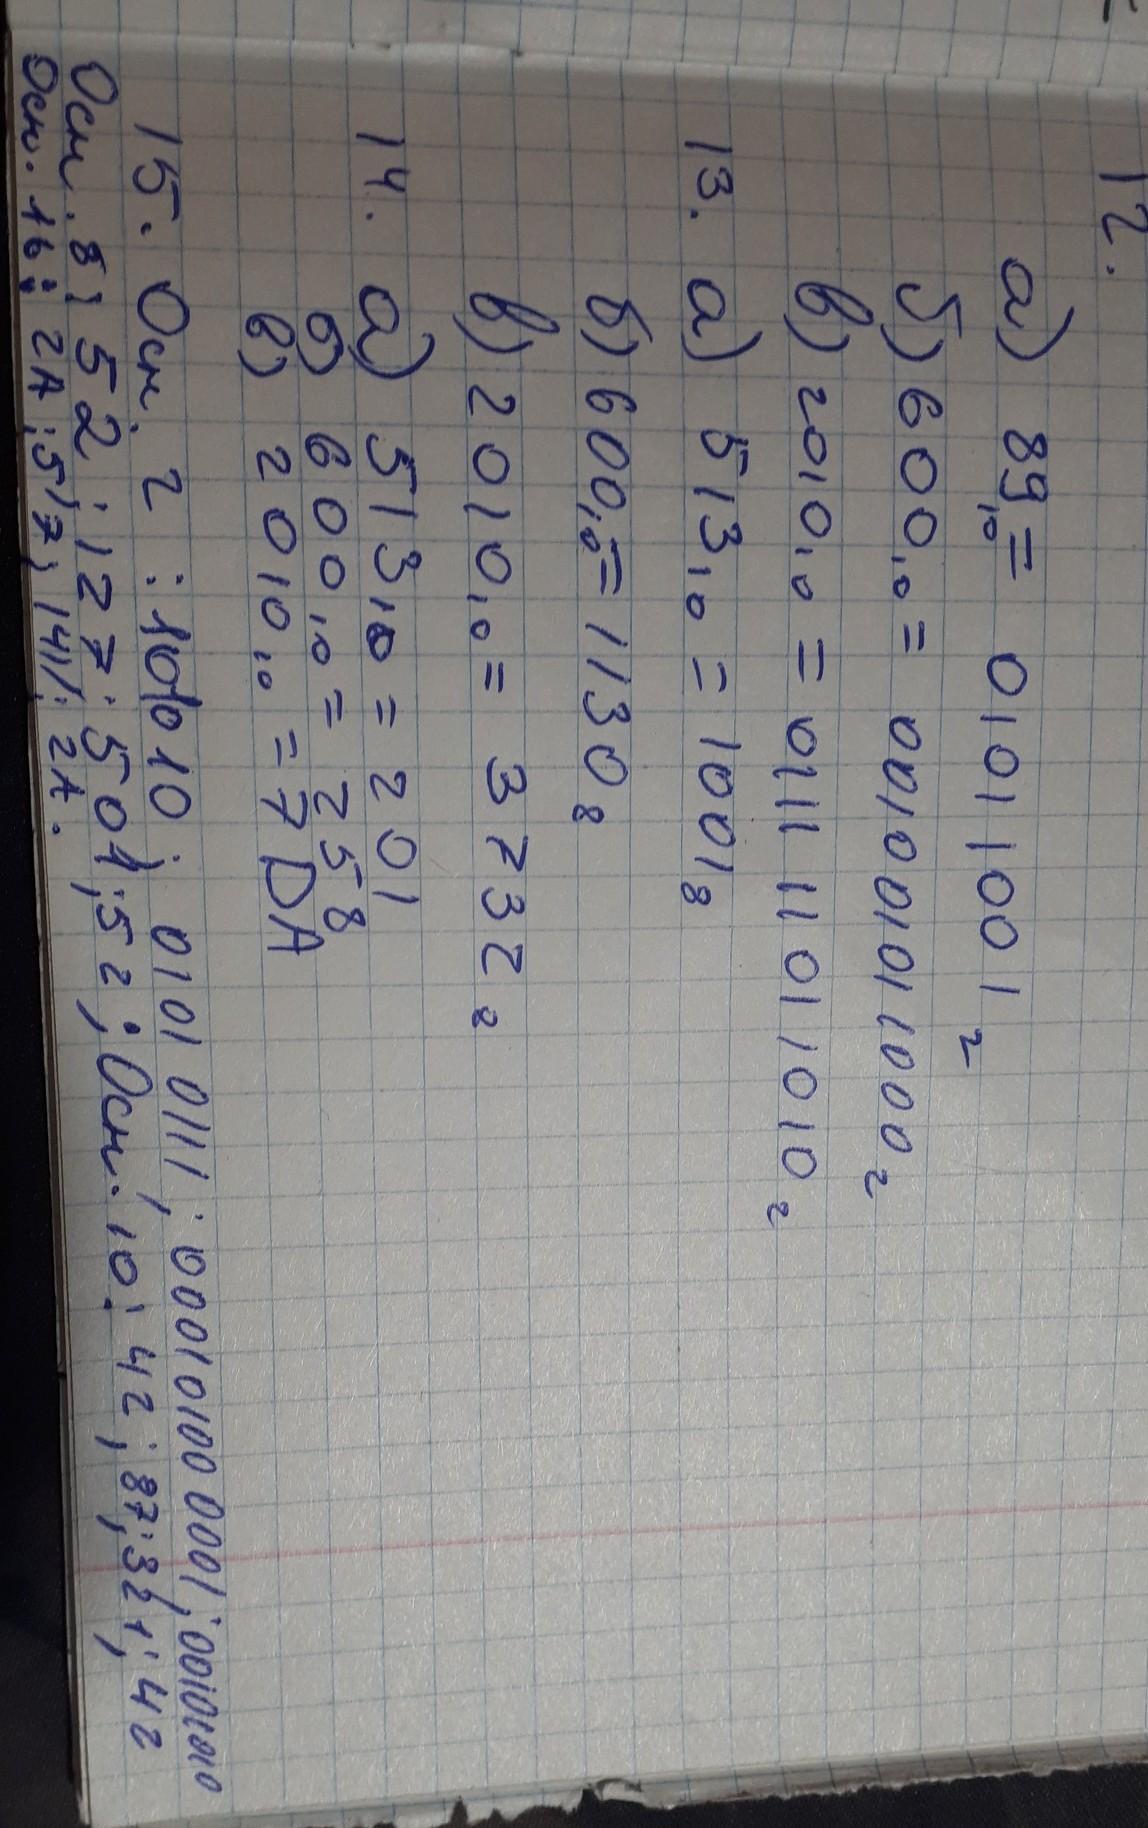 12.
а) 89₁₀ = 01011001₂
б) 600₁₀ = 001001011000₂
в) 2010₁₀ = 011111011010₂
13. а) 513₁₀ = 1001₈
б) 600₁₀ = 1130₈
в) 2010₁₀ = 3732₈
14. а) 513₁₀ = 201
б) 600₁₀ = 258
в) 2010₁₀ = 7DA
15. Осн. 2 : 101010 ; 0101 0111 ; 000101000001 ; 00101010
Осн. 8 : 52 ; 127 ; 501 ; 52 ; Осн. 10 : 42 ; 87 ; 321 ; 42
Осн. 16 : 2A ; 57 ; 141 ; 2A.